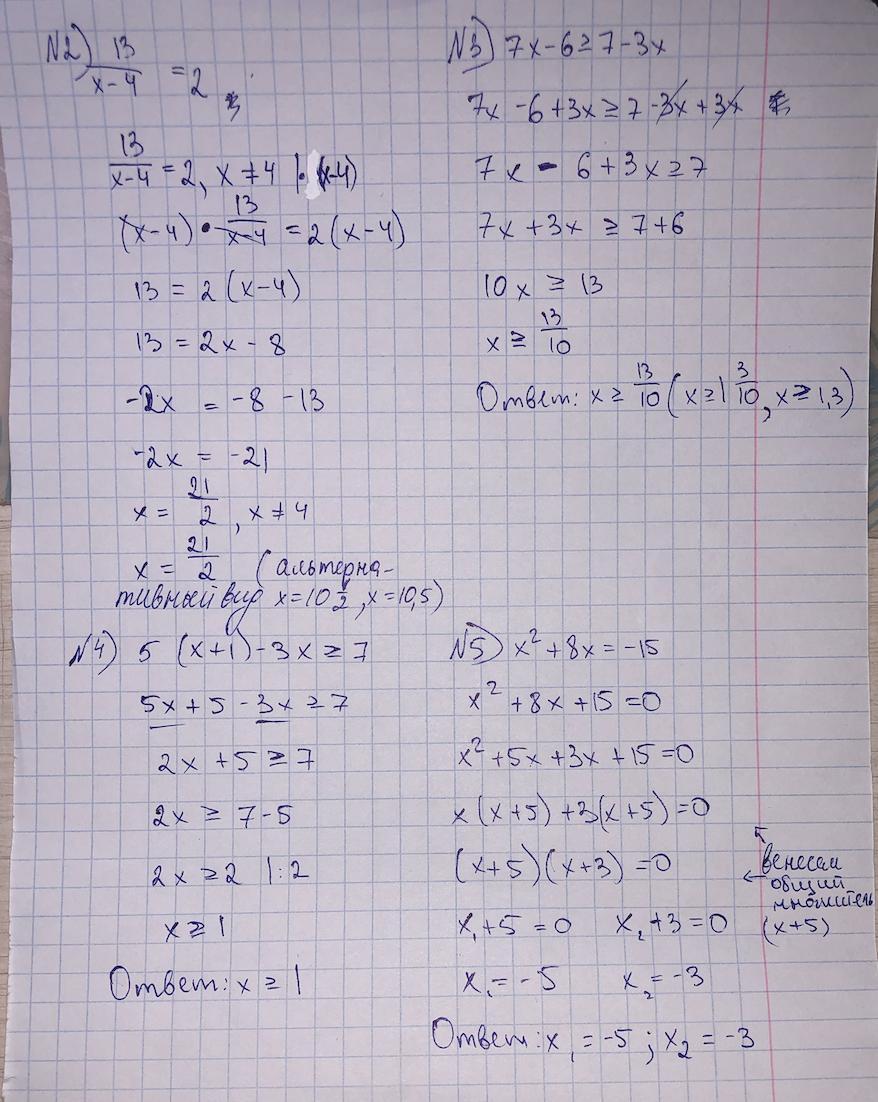 N2) 13/(x-4) = 2
13/(x-4) = 2, x ≠ 4 | · (x-4)
(x-4) · 13/(x-4) = 2 (x-4)
13 = 2 (x-4)
13 = 2x - 8
-2x = -8 -13
-2x = -21
x = 21/2, x ≠ 4
x = 21/2 (альтерна-
тивный вид x = 10 1/2, x = 10,5)
N3) 7x - 6 ≥ 7 - 3x
7x - 6 + 3x ≥ 7 - 3x + 3x
7x - 6 + 3x ≥ 7
7x + 3x ≥ 7 + 6
10x ≥ 13
x ≥ 13/10
Ответ: x ≥ 13/10 (x ≥ 1 3/10, x ≥ 1,3)
N4) 5 (x+1) - 3x ≥ 7
5x + 5 - 3x ≥ 7
2x + 5 ≥ 7
2x ≥ 7 - 5
2x ≥ 2 | : 2
x ≥ 1
Ответ: x ≥ 1
N5) x² + 8x = -15
x² + 8x + 15 = 0
x² + 5x + 3x + 15 = 0
x (x+5) + 3(x+5) = 0
(x+5)(x+3) = 0
венесам
← общий
множитель
(x+5)
x₁ + 5 = 0 x₂ + 3 = 0
x₁ = -5 x₂ = -3
Ответ: x₁ = -5 ; x₂ = -3